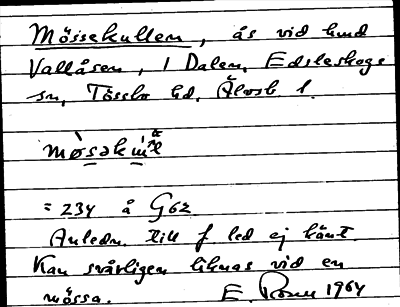 Mössekullen, ås vid hmd
Vallåsen, 1 Dalen, Edsleskogs
sn, Tössbo hd, Älvsb l.
mø̀sək
= 234 å G62
Anledn. till f. led ej känt.
Kan svårligen liknas vid en
mössa. E. 1964